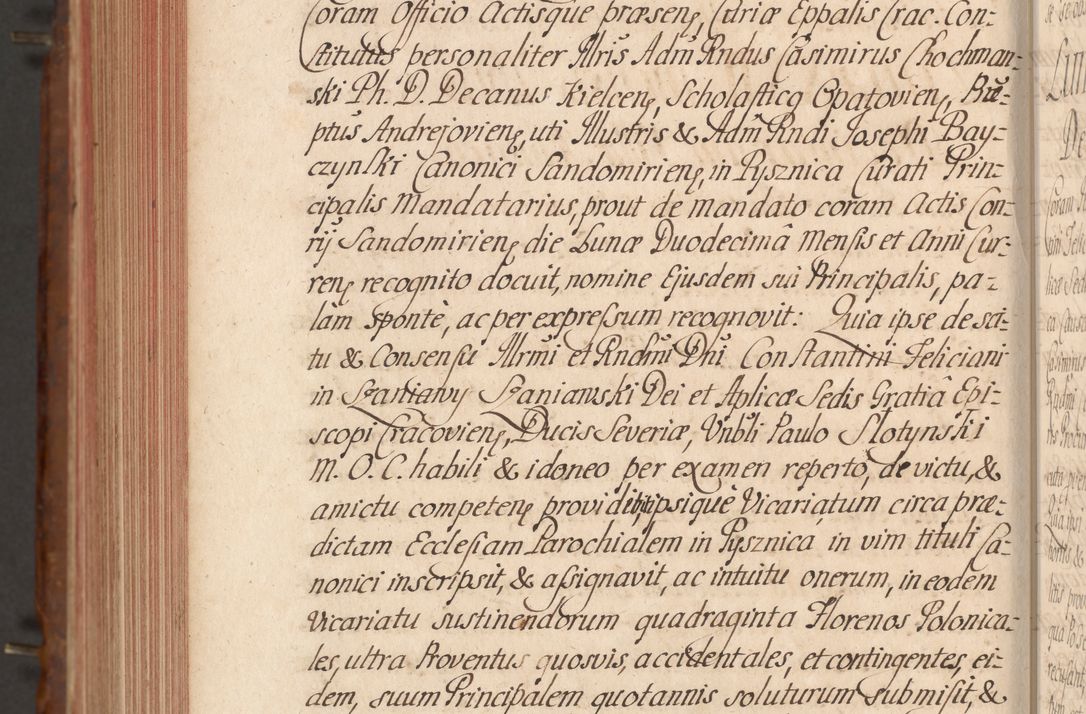 Coram Officio Actisque præsenę Curiæ Eppalis Crac. Con-
stitutus personaliter Illris Adm Rndus Casimirus Chochman-
ski Ph. D. Decanus Kielcenę, Scholasticg Opatovienę, Præ-
ptus Andrejovienę, uti Illustris & Adm Rndi Josephi Bay-
czynski Canonici Sandomirienę, in Pysznica Curati Prin-
cipalis Mandatarius, prout de mandato coram Actis Con-
rij Sandomirienę die Lunæ Duodecimâ Mensis et Anni Cur-
renę recognito docuit, nomine Ejusdem sui Principalis, pa-
lam sponte, ac per expressum recognovit: Quia ipse de sci-
tu & Consensu Illrmi et Rndmi Dni Constantini Feliciani
in Szaniawy Szaniawski Dei et Aplicæ Sedis Gratiâ Epi-
scopi Cracovienę, Ducis Severiæ, Vnbli Paulo Slotynski
M. O. C. habili & idoneo per examen reperto, de victu, &
amictu competenę providit, ipsique Vicariatum circa præ-
dictam Ecclesiam Parochialem in Pysznica in vim tituli Ca-
nonici inscripsit, & assignavit, ac intuitu onerum, in eodem
Vicariatu sustinendorum quadraginta Florenos Polonica-
les, ultra Proventus quosvis, accidentales, et contingentes, ei-
dem, suum Principalem quotannis soluturum submisit, &